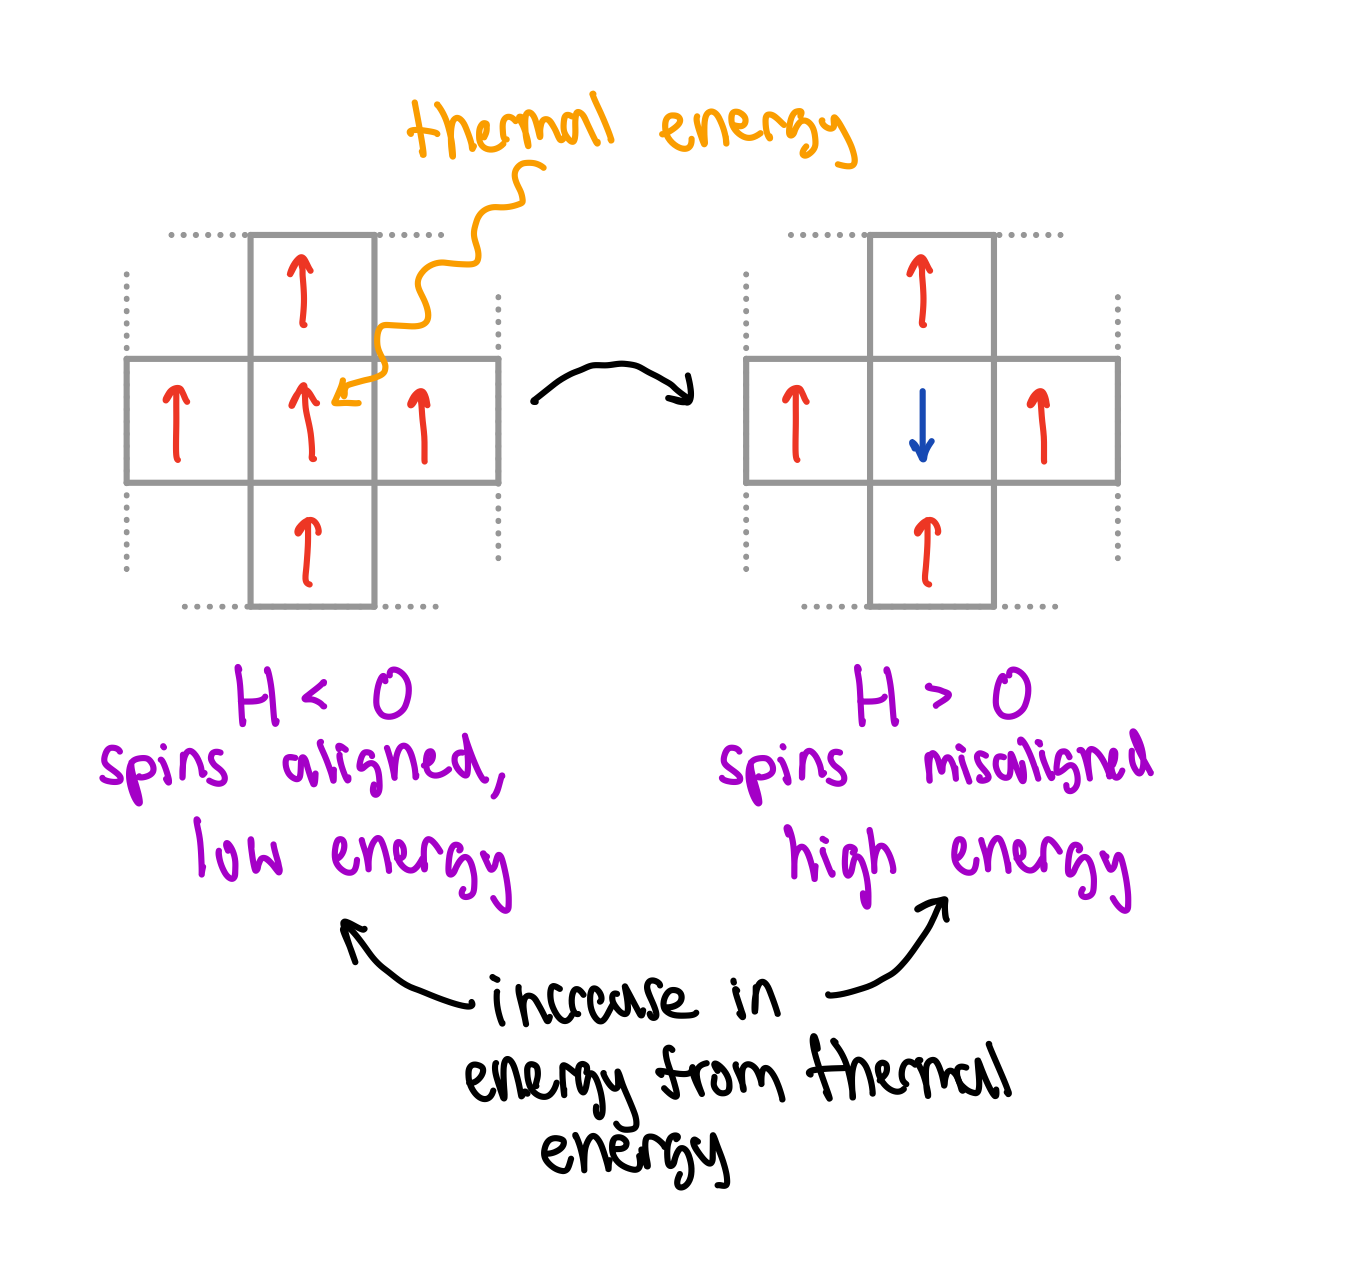 thermal energy
H < 0
spins aligned,
low energy
H > 0
spins misaligned
high energy
increase in
energy from thermal
energy